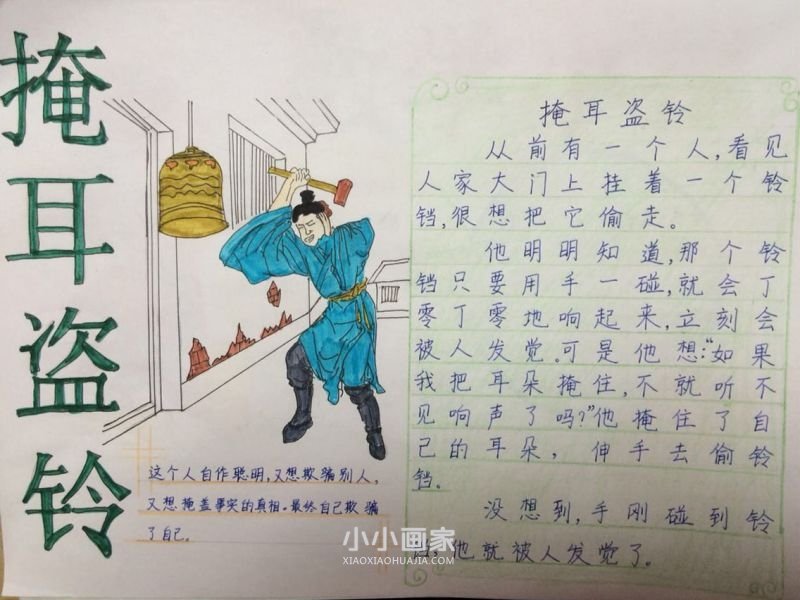 掩耳盗铃
掩耳盗铃
从前有一个人,看见
人家大门上挂着一个铃
铛,很想把它偷走。
他明明知道,那个铃
铛只要用手一碰,就会丁
零丁零地响起来,立刻会
被人发觉。可是他想:“如果
我把耳朵掩住,不就听不
见响声了吗?”他掩住了自
己的耳朵,伸手去偷铃
铛。
没想到,手刚碰到铃
他就被人发觉了。
这个人自作聪明,又想欺骗别人,
又想掩盖事实的真相。最终自己欺骗
了自己。
小小画家
XIAOXIAOHUAJIA.COM